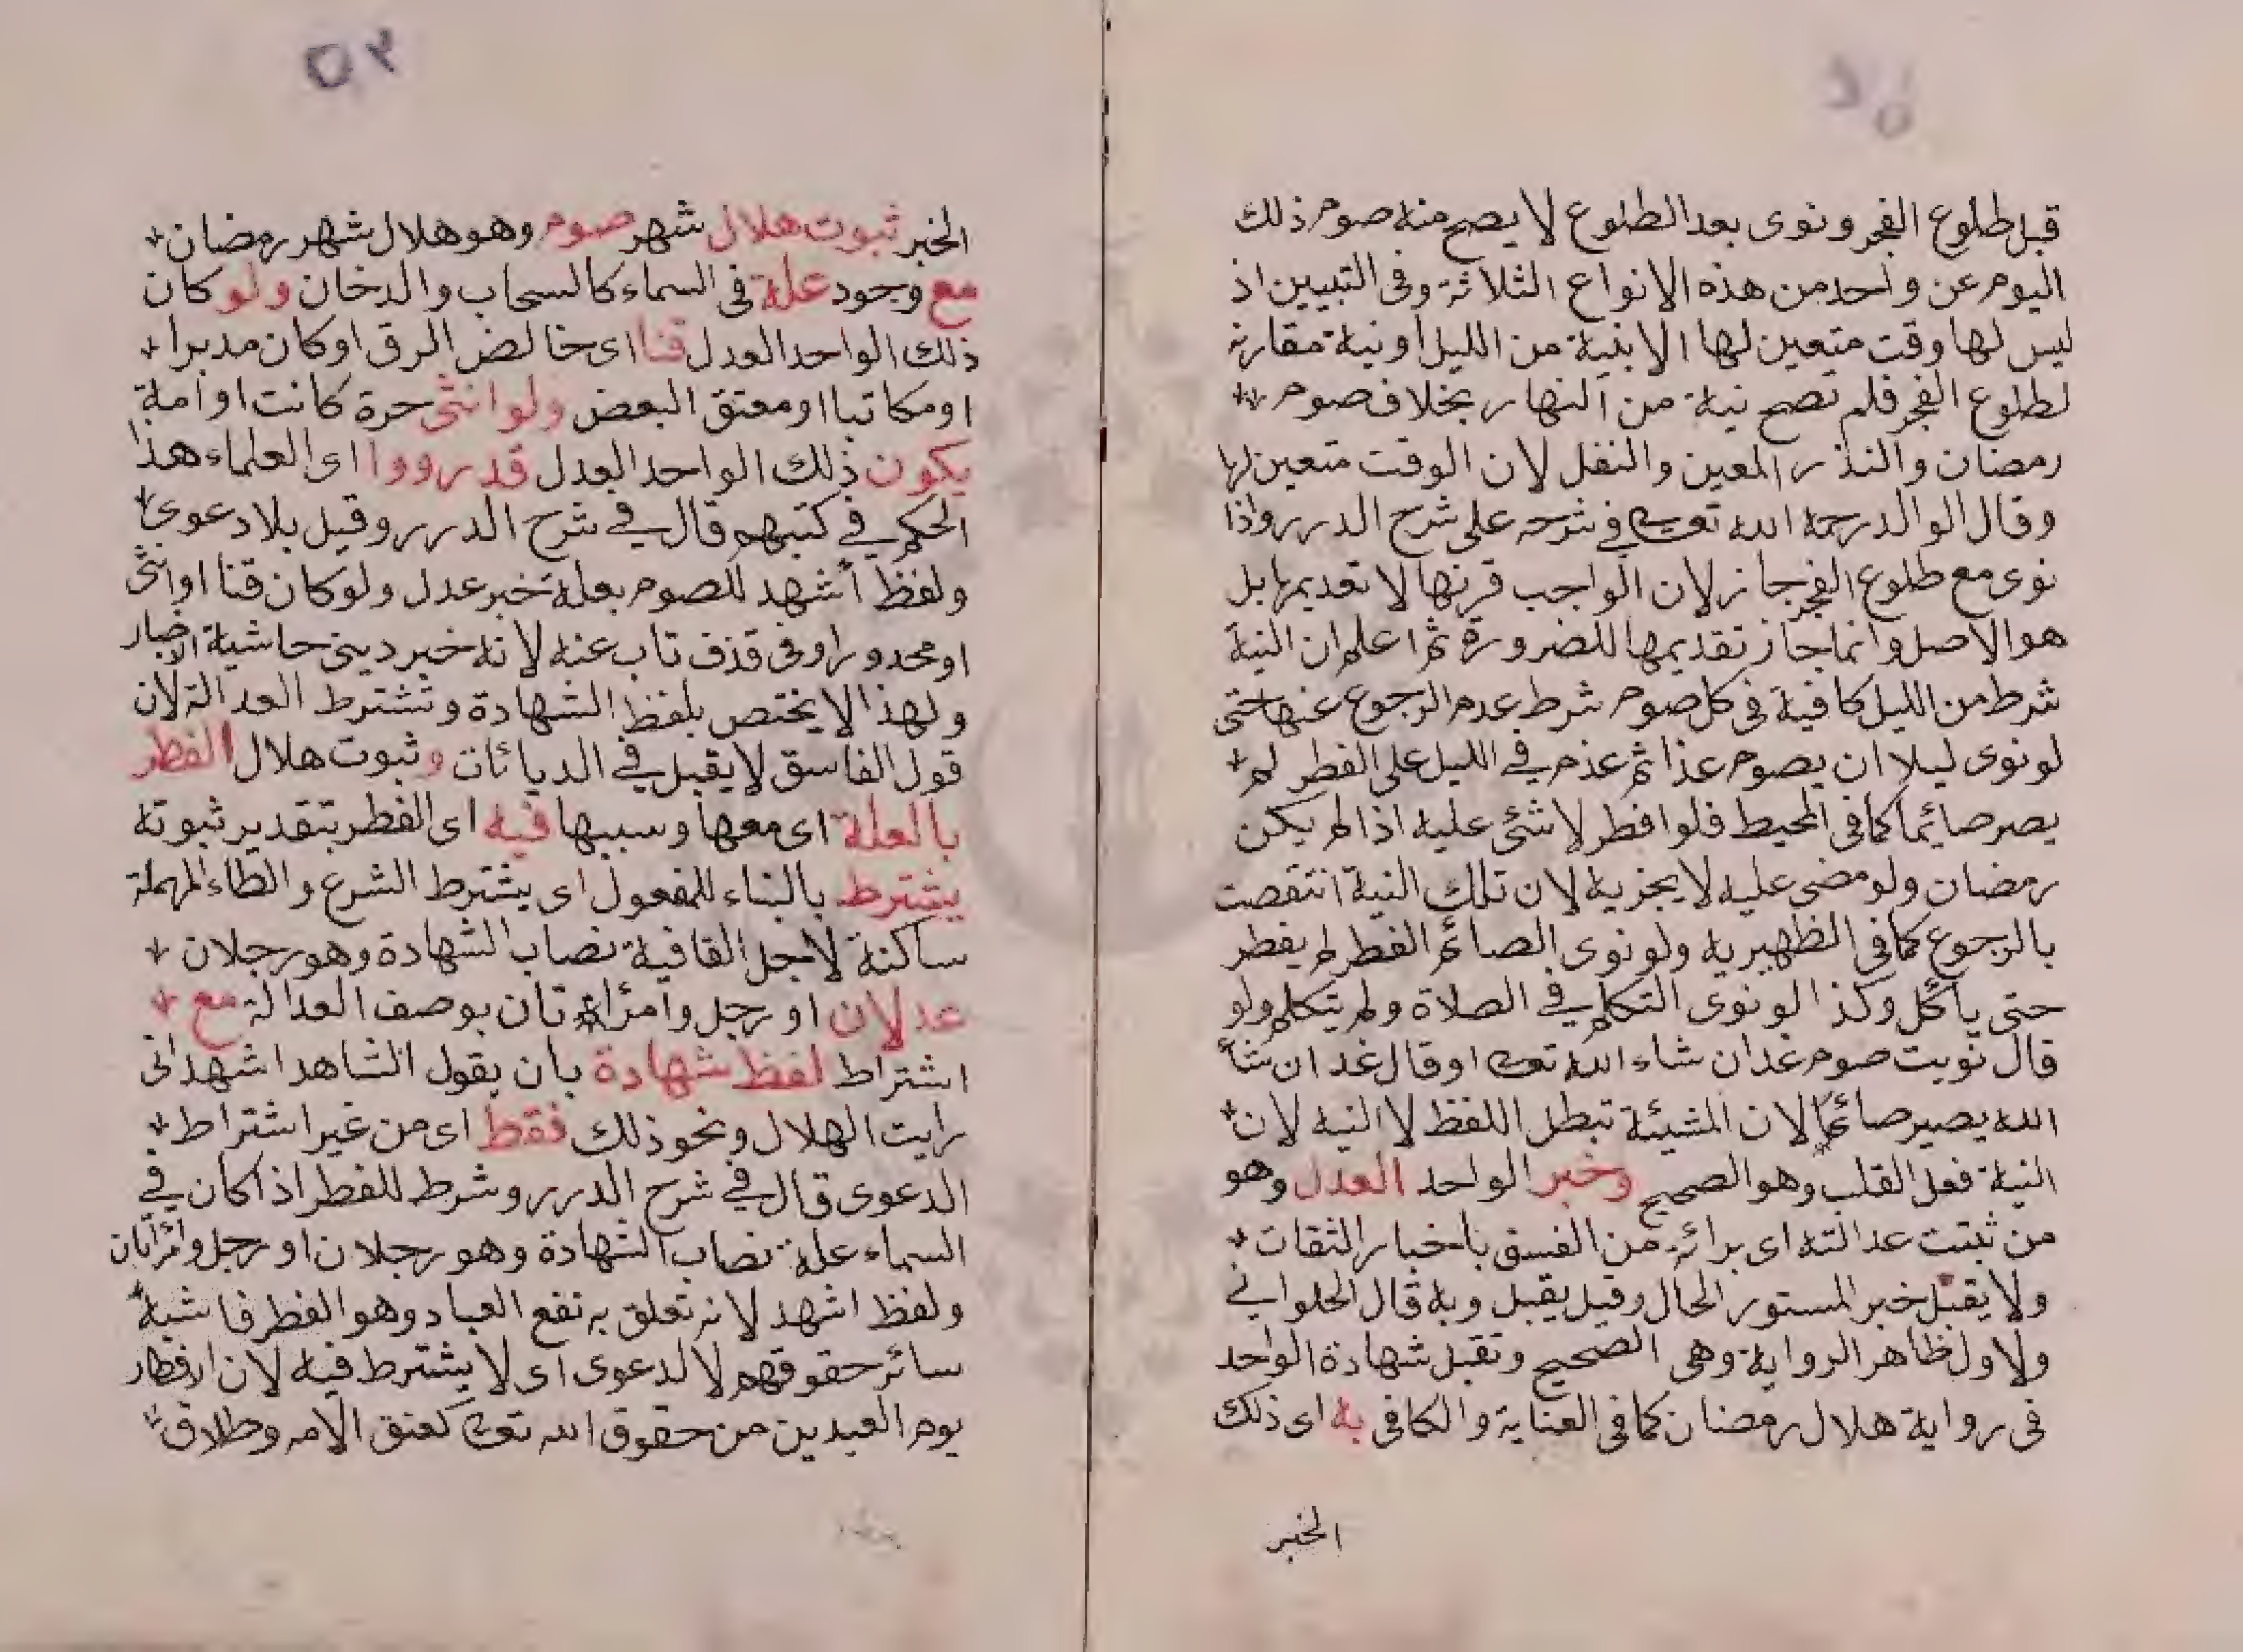 قبل طلوع الفجر ونوى بعد الطلوع لا يصح منه صوم ذلك
اليوم عن واحد من هذه الانواع الثلاثة وفى التبيين اذ
ليس لها وقت متعين لها الا بنية من الليل او نية مقارنة
لطلوع الفجر فلم تصح نية من النهار بخلاف صوم
رمضان والنذر المعين والنفل لان الوقت متعين لها
وقال الوالد رحمه الله تعالى في شرحه على شرح الدرر واذا
نوى مع طلوع الفجر جاز لان الواجب قرنها لا تقديمها بل
هو الاصل وانما جاز تقديمها للضرورة ثم اعلم ان النية
شرط من الليل كافية فى كل صوم شرط عدم الرجوع عنها حتى
لو نوى ليلا ان يصوم غذا ثم عذم في الليل على الفطر لم
يصر صائيما كما فى المحيط فلو افطر لا شئ عليه اذا لم يكن
رمضان ولو مضى عليه لا يجزيه لان تلك النية انتقصت
بالرجوع كما فى الظهيريه ولو نوى الصائم الفطر لم يفطر
حتى يأكل وكذا لو نوى التكلم في الصلاة ولم يتكلم ولو
قال نويت صوم غدا ان شاء الله تعالى او قال غد ان شأ
الله يصير صائما لان المشيئة تبطل اللفظ لا النيه لان
النية فعل القلب وهو الصحيح وخبر الواحد العدل وهو
من ثبتت عدالته اى برائه من الفسق باخبار الثقات
ولا يقبل خبر المستور الحال وقيل يقبل وبه قال الحلواني
ولاول ظاهر الرواية وهى الصحيح وتقبل شهادة الواحد
فى رواية هلال رمضان كما فى العناية والكافى به اى ذلك
الخبر
٥٢
الخبر ثبوت هلال شهر صوم وهو هلال شهر رمضان
مع وجود علة فى السماء كالسحاب والدخان ولو كان
ذلك الواحد العدل قنا اى خالض الرق او كان مدبرا
او مكاتبا او معتق البعض ولو انثى حرة كانت او امة
يكون ذلك الواحد العدل قد رووا اى العلماء هذا
الحكم في كتبهم قال في شرح الدرر وقيل بلا دعوى
ولفظ أشهد للصوم بعلة خبر عدل ولو كان قنا او انثى
او محدورا وفى قذف تاب عنه لانه خبر دينى حاشية الاخبار
ولهذا لا يختص بلفظ الشهادة وتشترط العدالة لان
قول الفاسق لا يقبل في الديائات وثبوت هلال الفطر
بالعلة اى معها وسببها فيه اى الفطر بتقدير ثبوته
يشترط بالبناء للمفعول اى يشترط الشرع والطاء المهملة
ساكنة لاجل القافية نصاب الشهادة وهو رجلان
عدلان او رجل وامرأتان بوصف العدالة مع
اشتراط لفظ شهادة بان يقول الشاهد اشهد انى
رايت الهلال ونحو ذلك فقط اى من غير اشتراط
الدعوى قال في شرح الدرر وشرط للفطر اذا كان في
السماء علة نصاب الشهادة وهو رجلان او رجل وامرأتان
ولفظ اشهد لانه تعلق به نفع العباد وهو الفطر فاشبه
سائر حقوقهم لا لدعوى اى لا يشترط فيه لان افطار
يوم العيدين من حقوق الله تعالى كعتق الامه وطلاق